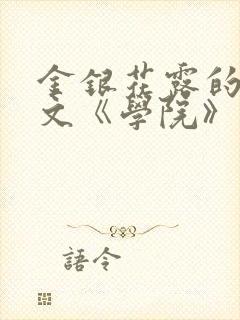 金銀花露的
文《學院》
語令